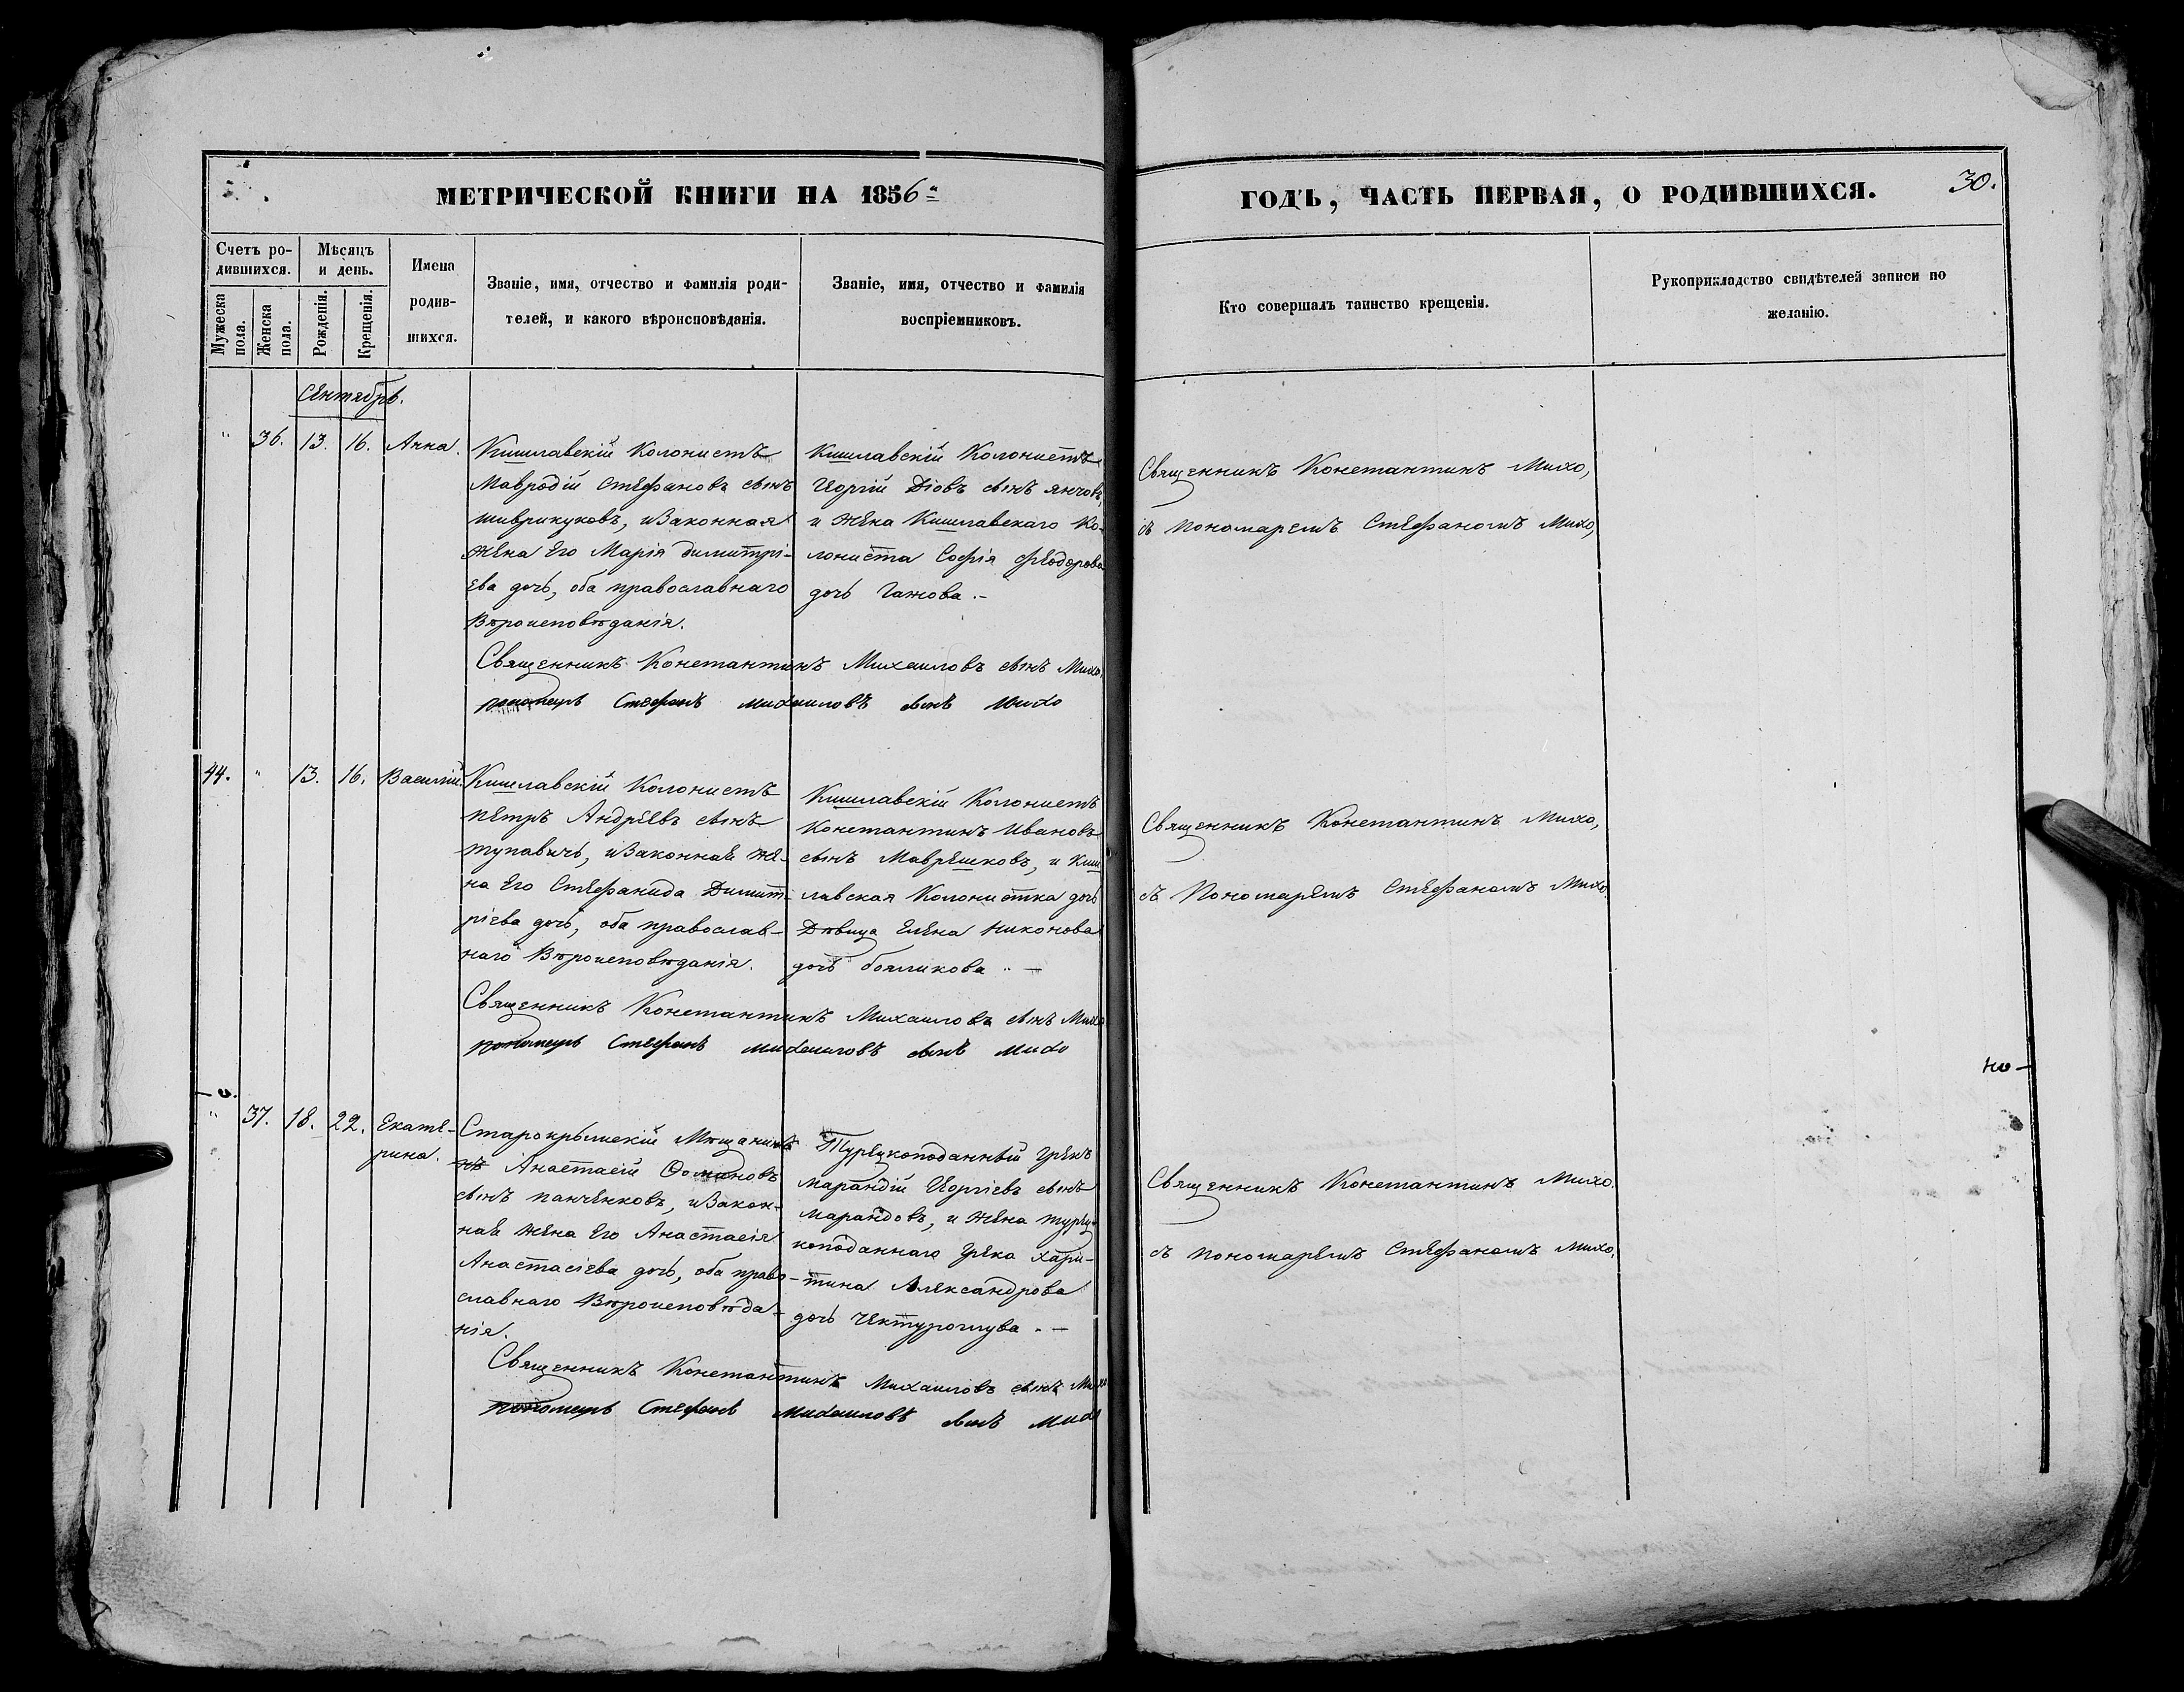 МЕТРИЧЕСКОЙ КНИГИ НА 1856й
ГОДЪ, ЧАСТЬ ПЕРВАЯ, О РОДИВШИХСЯ.
30.
Счетъ ро-
дившихся.
Мужеска
пола.
Женска
пола.
Мѣсяцъ
и день.
Рожденія.
Крещенія.
Имена
родив-
шихся.
Званіе, имя, отчество и фамилія роди-
телей, и какого вѣроисповѣданія.
Званіе, имя, отчество и фамилія
воспріемниковъ.
Кто совершалъ таинство крещенія.
Рукоприкладство свидѣтелей записи по
желанію.
Сентябрь.
" 36. 13. 16. Анна.
Кишлавскій Колонистъ
Мавродій Стефановъ сынъ
Шиврикуковъ, и Законная
жена Его Марія Димитрі-
ева дочь, оба православнаго
Вѣроисповѣданія.
Кишлавскій Колонистъ
Георгій Діовъ сынъ Янчовъ,
и жена Кишлавскаго Ко-
лониста Софія Феодорова
дочь Ганова.-
Священникъ Константинъ Михо,
съ пономаремъ Стефаномъ Михо,
Священникъ Константинъ Михаиловъ сынъ Михо.
пономарь Стефанъ Михаиловъ сынъ Михо
44. " 13. 16. Василій.
Кишлавскій Колонистъ
Петръ Андреевъ сынъ
Тупавичь, и Законная же-
на Его Стефанида Димит-
ріева дочь, оба православ-
наго Вѣроисповѣданія.
Кишлавскій Колонистъ
Константинъ Ивановъ
сынъ Маврешковъ, и Киш-
лавская Колонистка дочь
Дѣвица Елена Никонова
дочь Бояликова.-
Священникъ Константинъ Михо,
съ Пономаремъ Стефаномъ Михо.
Священникъ Константинъ Михаиловъ сынъ Михо
пономарь Стефанъ Михаиловъ сынъ Михо
но-
" 37. 18. 22. Екате-
рина.
Старокрымскій Мѣщанинъ
нъ Анастасій Ѳомановъ
сынъ Панченковъ, и Закон-
ная жена Его Анастасія
Анастасіева дочь, оба право-
славнаго Вѣроисповѣда-
нія.
Турецкоподанный Грекъ
Марандій Георгіевъ сынъ
Марандовъ, и жена турец-
коподаннаго Грека Хари-
тина Александрова
дочь Чектуроглува.-
Священникъ Константинъ Михо.
съ пономаремъ Стефаномъ Михо.
Священникъ Константинъ Михаиловъ сынъ Михо
пономарь Стефанъ Михаиловъ сынъ Михо